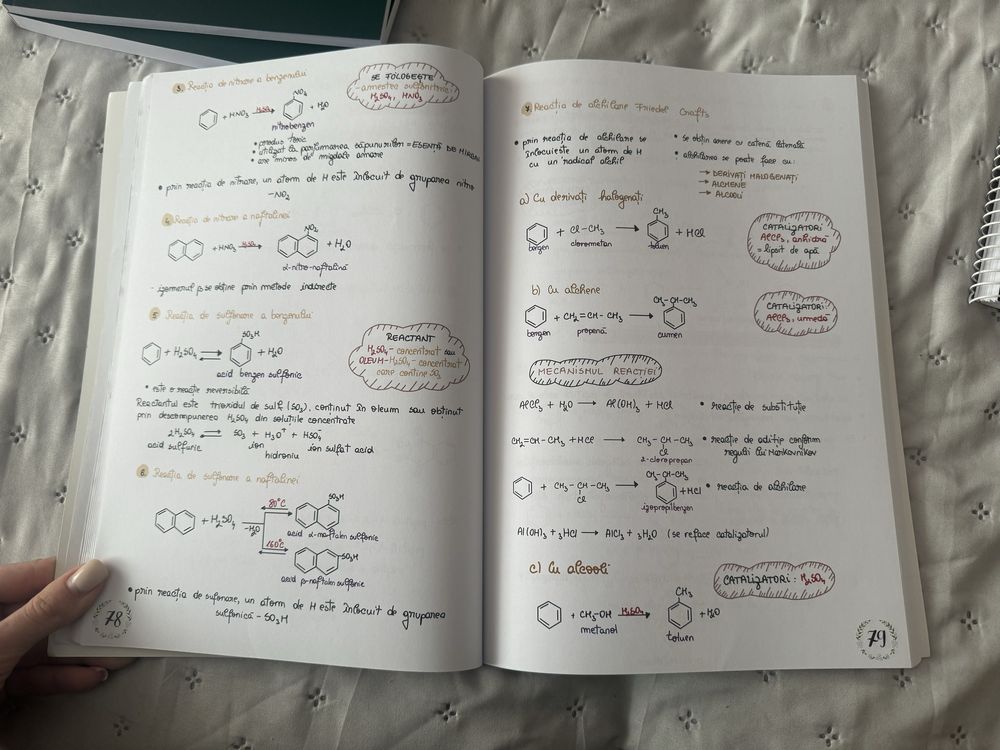 3. Reacția de nitrare a benzenului
SE FOLOSEȘTE
-amestec sulfonitric
H₂SO₄, HNO₃
+ HNO₃ H₂SO₄ → NO₂ + H₂O
nitrobenzen
• produs toxic
• utilizat la parfumarea săpunurilor = ESENȚĂ DE
• are miros de migdale amare
• prin reacția de nitrare, un atom de H este înlocuit de gruparea nitro
-NO₂
4. Reacția de nitrare a naftalinei
+ HNO₃ H₂SO₄ → NO₂ + H₂O
α-nitro-naftalină
- izomerul β se obține prin metode indirecte
5. Reacția de sulfonare a benzenului
REACTANT
H₂SO₄- concentrat sau
OLEUM-H₂SO₄- concentrat
care conține SO₃
+ H₂SO₄ ⇄ SO₃H + H₂O
acid benzen sulfonic
• este o reacție reversibilă
Reactantul este trioxidul de sulf (SO₃), conținut în oleum sau obținut
prin descompunerea H₂SO₄ din soluțiile concentrate
2H₂SO₄ ⇄ SO₃ + H₃O⁺ + HSO₄⁻
acid sulfuric ion hidroniu ion sulfat acid
6. Reacția de sulfonare a naftalinei
+ H₂SO₄ -H₂O
80°C SO₃H
acid α-naftalen sulfonic
160°C SO₃H
acid β-naftalen sulfonic
• prin reacția de sulfonare, un atom de H este înlocuit de gruparea
sulfonică - SO₃H
78
7. Reacția de alchilare Friedel Crafts
• prin reacția de alchilare se
înlocuiește un atom de H
cu un radical alchil
• se obțin arene cu catenă laterală
• alchilarea se poate face cu:
→ DERIVAȚI HALOGENAȚI
→ ALCHENE
→ ALCOOLI
a) Cu derivați halogenați
CATALIZATORI:
AlCl₃, anhidră
= lipsit de apă
+ Cl-CH₃ → CH₃ + HCl
benzen clorometan toluen
b) Cu alchene
CATALIZATORI:
AlCl₃, umedă
+ CH₂=CH-CH₃ → CH₃-CH-CH₃
benzen propenă cumen
MECANISMUL REACȚIEI
AlCl₃ + H₂O → Al(OH)₃ + HCl • reacție de substituție
CH₂=CH-CH₃ + HCl → CH₃-CH-CH₃ • reacție de adiție conform
Cl regulii lui Markovnikov
2-cloropropan
+ CH₃-CH-CH₃ → CH₃-CH-CH₃ + HCl • reacția de alchilare
Cl
izopropilbenzen
Al(OH)₃ + 3HCl → AlCl₃ + 3H₂O (se reface catalizatorul)
c) Cu alcooli
CATALIZATORI: H₂SO₄
+ CH₃-OH H₂SO₄ → CH₃ + H₂O
metanol toluen
79